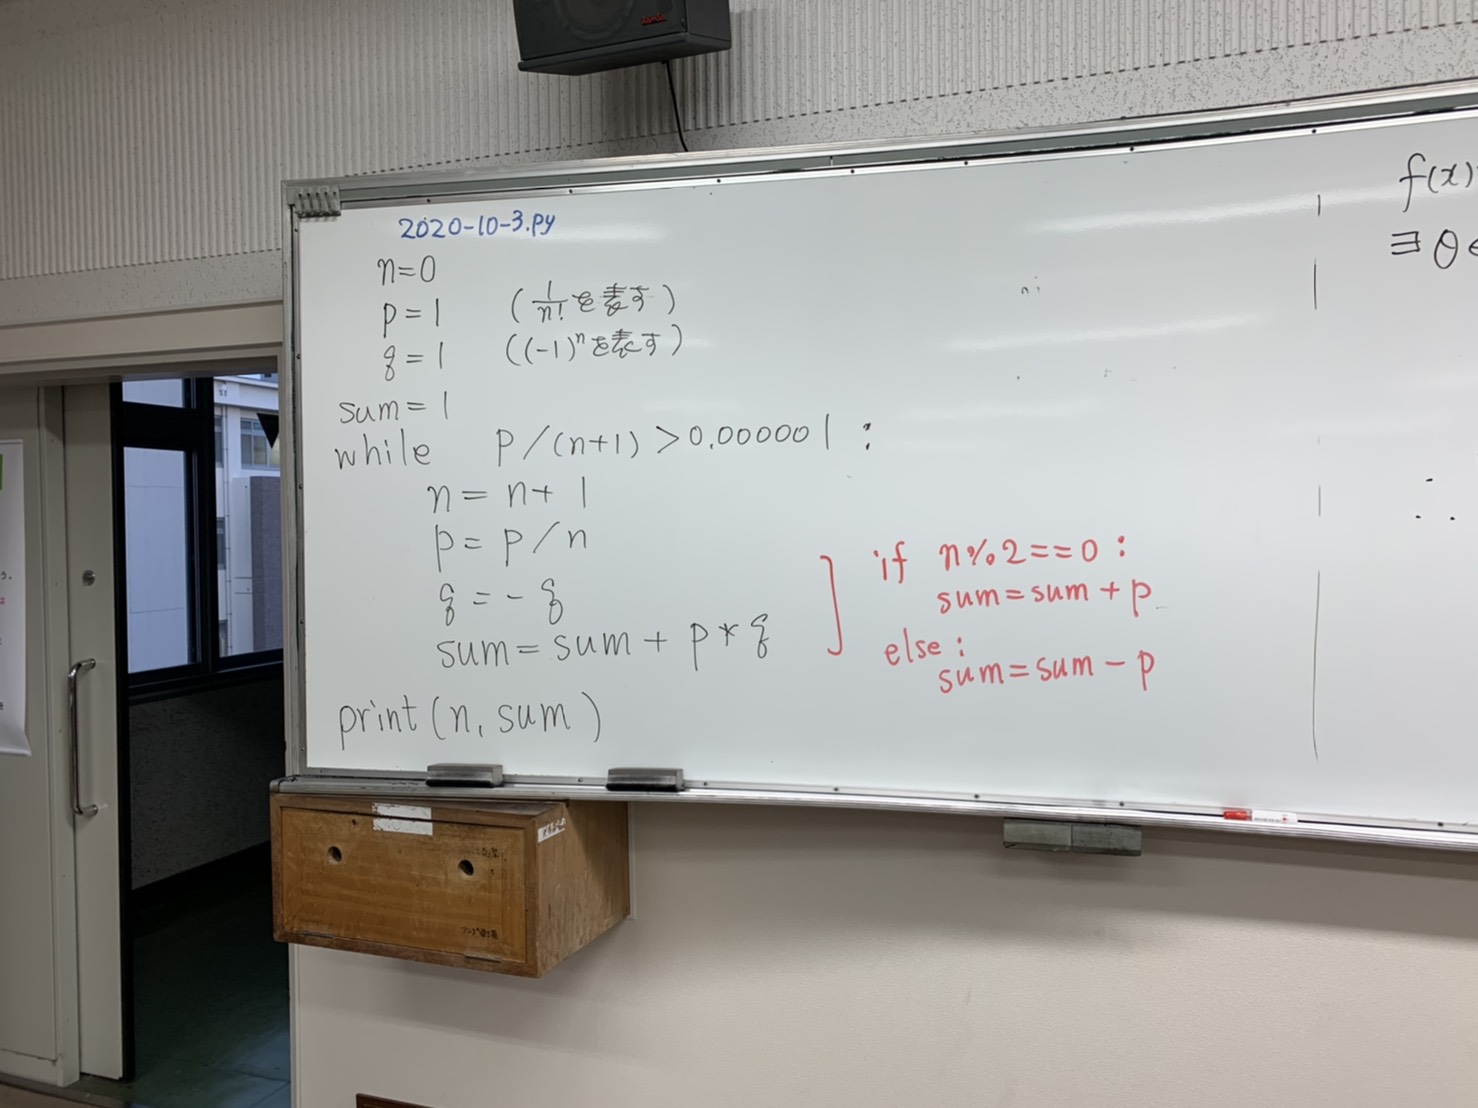 2020-10-3.py
n=0
p=1 (1/n!を表す)
q=1 ((-1)^nを表す)
sum=1
while p/(n+1)>0.000001:
n=n+1
p=p/n
q=-q
sum=sum+p*q
print(n, sum)
if n%2==0:
sum=sum+p
else:
sum=sum-p
f(x)
∃θ
∴